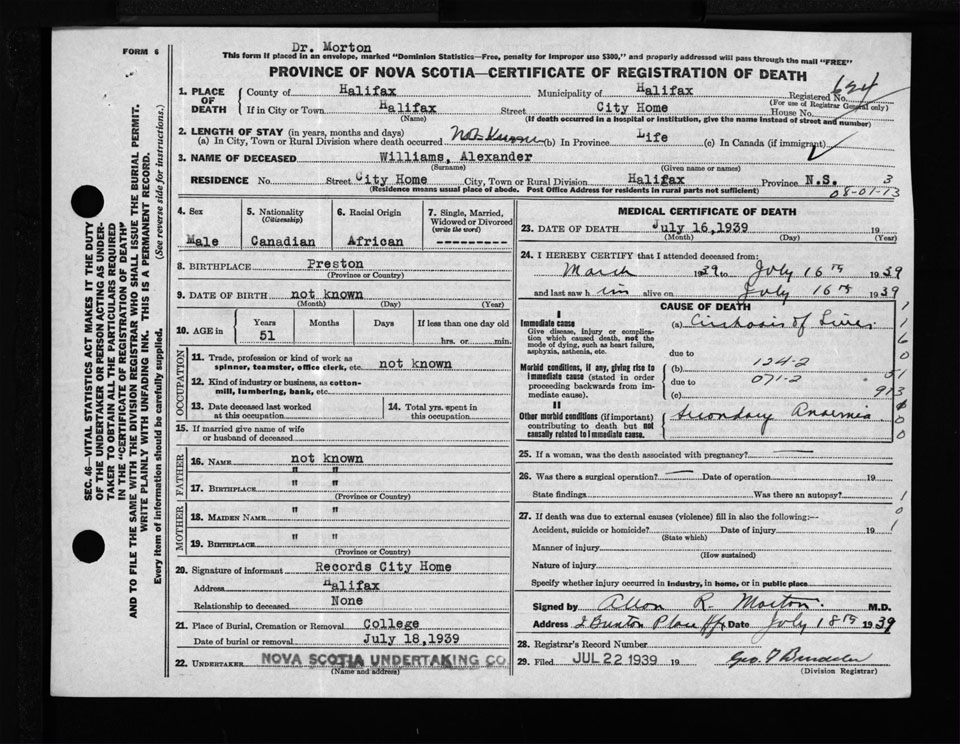 Dr. Morton
FORM 6
This form if placed in an envelope, marked "Dominion Statistics—Free, penalty for improper use $300," and properly addressed will pass through the mail "FREE"
PROVINCE OF NOVA SCOTIA—CERTIFICATE OF REGISTRATION OF DEATH
SEC. 46—VITAL STATISTICS ACT MAKES IT THE DUTY
OF THE UNDERTAKER OR PERSON ACTING AS UNDER-
TAKER TO OBTAIN ALL THE PARTICULARS REQUIRED
IN THE "CERTIFICATE OF REGISTRATION OF DEATH"
AND TO FILE THE SAME WITH THE DIVISION REGISTRAR WHO SHALL ISSUE THE BURIAL PERMIT.
WRITE PLAINLY WITH UNFADING INK. THIS IS A PERMANENT RECORD.
Every item of information should be carefully supplied. (See reverse side for instructions.)
1. PLACE OF DEATH County of Halifax Municipality of Halifax Registered No. 624
(For use of Registrar General only)
If in City or Town Halifax Street City Home House No.
(Name) (If death occurred in a hospital or institution, give the name instead of street and number)
2. LENGTH OF STAY (in years, months and days)
(a) In City, Town or Rural Division where death occurred (b) In Province Life (c) In Canada (if immigrant)
3. NAME OF DECEASED Williams, Alexander
(Surname) (Given name or names)
RESIDENCE No. Street City Home City, Town or Rural Division Halifax Province N.S. 3
(Residence means usual place of abode. Post Office Address for residents in rural parts not sufficient) 08-01-13
4. Sex
Male
5. Nationality
(Citizenship)
Canadian
6. Racial Origin
African
7. Single, Married,
Widowed or Divorced
(write the word)
----------
8. BIRTHPLACE Preston
(Province or Country)
9. DATE OF BIRTH not known
(Month) (Day) (Year)
10. AGE in Years Months Days If less than one day old
51 hrs. or min.
OCCUPATION
11. Trade, profession or kind of work as
spinner, teamster, office clerk, etc. not known
12. Kind of industry or business, as cotton-
mill, lumbering, bank, etc.
13. Date deceased last worked
at this occupation
14. Total yrs. spent in
this occupation
15. If married give name of wife
or husband of deceased
FATHER
16. NAME not known
17. BIRTHPLACE " "
(Province or Country)
MOTHER
18. MAIDEN NAME " "
19. BIRTHPLACE " "
(Province or Country)
20. Signature of informant Records City Home
Address Halifax
Relationship to deceased None
21. Place of Burial, Cremation or Removal College
Date of burial or removal July 18,1939
22. UNDERTAKER NOVA SCOTIA UNDERTAKING CO
(Name and address)
MEDICAL CERTIFICATE OF DEATH
23. DATE OF DEATH July 16,1939 19
(Month) (Day) (Year)
24. I HEREBY CERTIFY that I attended deceased from:
March 1939 to July 16th 1939
and last saw him alive on July 16th 1939
CAUSE OF DEATH
I
Immediate cause
Give disease, injury or complica-
tion which caused death, not the
mode of dying, such as heart failure,
asphyxia, asthenia, etc.
(a) Cirrhosis of Liver
due to
124-2
Morbid conditions, if any, giving rise to
immediate cause (stated in order
proceeding backwards from im-
mediate cause).
(b)
due to 071-2
(c)
51
913
II
Other morbid conditions (if important)
contributing to death but not
causally related to immediate cause.
Secondary Anaemia
1
1
6
0
0
0
25. If a woman, was the death associated with pregnancy? —
26. Was there a surgical operation? — Date of operation 19
State findings Was there an autopsy? 1
0
27. If death was due to external causes (violence) fill in also the following:—
Accident, suicide or homicide? Date of injury 19 1
(State which)
Manner of injury
(How sustained)
Nature of injury
Specify whether injury occurred in industry, in home, or in public place
Signed by Allon R. Morton. M.D.
Address Date July 18th 1939
28. Registrar's Record Number
29. Filed JUL 22 1939 19
(Division Registrar)